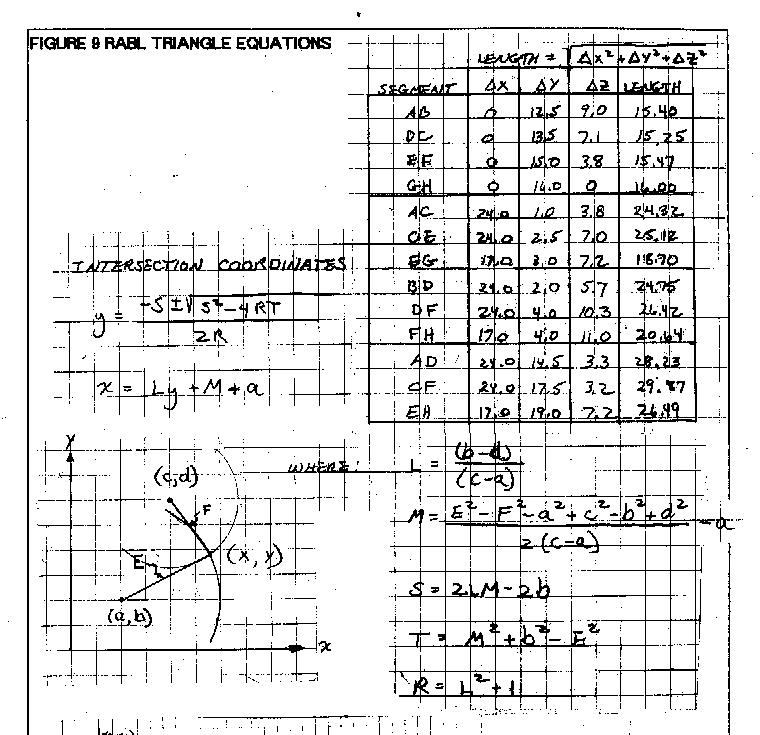 FIGURE 9 RABL TRIANGLE EQUATIONS
LENGTH = √ΔX²+ΔY²+ΔZ²
SEGMENT ΔX ΔY ΔZ LENGTH
AB 0 12.5 9.0 15.40
DC 0 13.5 7.1 15.25
EF 0 15.0 3.8 15.47
GH 0 16.0 0 16.00
AC 24.0 1.0 3.8 24.32
CE 24.0 2.5 7.0 25.12
EG 17.0 3.0 7.2 18.70
BD 24.0 2.0 5.7 24.75
DF 24.0 4.0 10.3 26.42
FH 17.0 4.0 11.0 20.64
AD 24.0 14.5 3.3 28.23
CF 24.0 17.5 3.2 29.87
EH 17.0 19.0 7.2 26.49
INTERSECTION COORDINATES
y = (-S ±√S²-4RT) / 2R
x = Ly + M + a
WHERE: L = (b-d) / (c-a)
M = (E²-F²-a²+c²-b²+d²) / 2(c-a) - a
S = 2LM-2b
T = M²+b²-E²
R = L²+1
Y
(c,d)
F
E
(x, y)
(a,b)
x